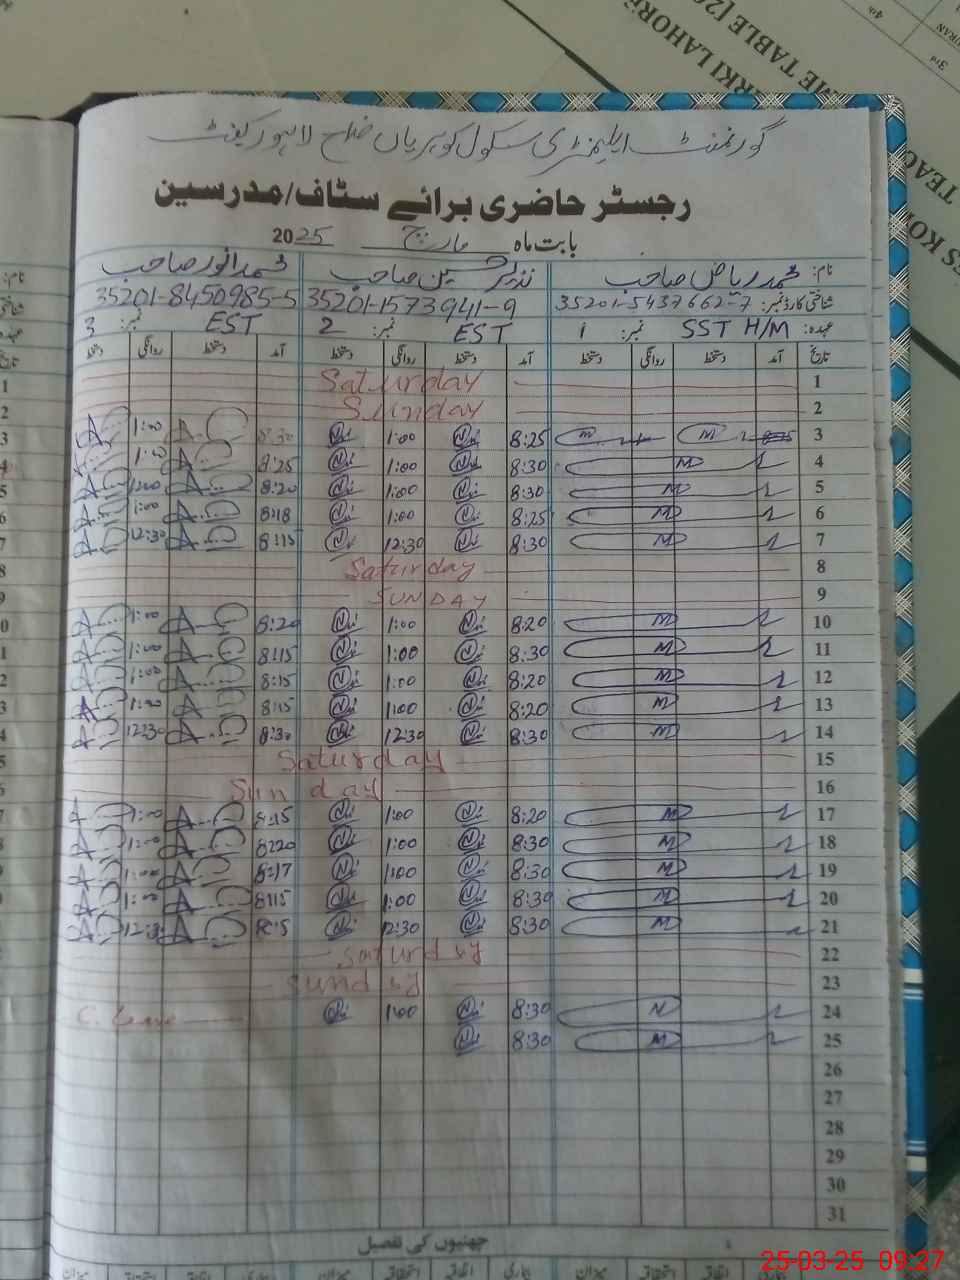 گورنمنٹ ایلیمنٹری سکول کوہریاں ضلع لاہور کینٹ
رجسٹر حاضری برائے سٹاف/مدرسین
بابت ماہ مارچ 2025
نام: محمد ریاض صاحب نذیر حسین صاحب محمد انور صاحب
شناختی کارڈ نمبر: 35201-5437662-7 35201-1573941-9 35201-8450985-5
عہدہ: SST H/M نمبر: 1 EST نمبر: 2 EST نمبر: 3
تاریخ آمد دستخط روانگی دستخط آمد دستخط روانگی دستخط آمد دستخط روانگی دستخط
1 Saturday
2 Sunday
3 8:25 1:00 8:30 1:00
4 8:30 1:00 8:25 1:00
5 8:30 1:00 8:20 1:00
6 8:25 1:00 8:18 1:00
7 8:30 12:30 8:15 12:30
8 Saturday
9 SUNDAY
10 8:20 1:00 8:20 1:00
11 8:30 1:00 8:15 1:00
12 8:20 1:00 8:15 1:00
13 8:20 1:00 8:15 1:00
14 8:30 12:30 8:30 12:30
15 Saturday
16 Sunday
17 8:20 1:00 8:15 1:00
18 8:30 1:00 8:20 1:00
19 8:30 1:00 8:17 1:00
20 8:30 1:00 8:15 1:00
21 8:30 12:30 12:30
22
23
24 8:30 1:00 C. Leave
25 8:30
26
27
28
29
30
31
چھٹیوں کی تفصیل
میزان اتفاقیہ استحقاقیہ میزان
25-03-25 09:27
TIME TABLE [20
RKI LAHORE
TEAC
S KO
3rd
4th